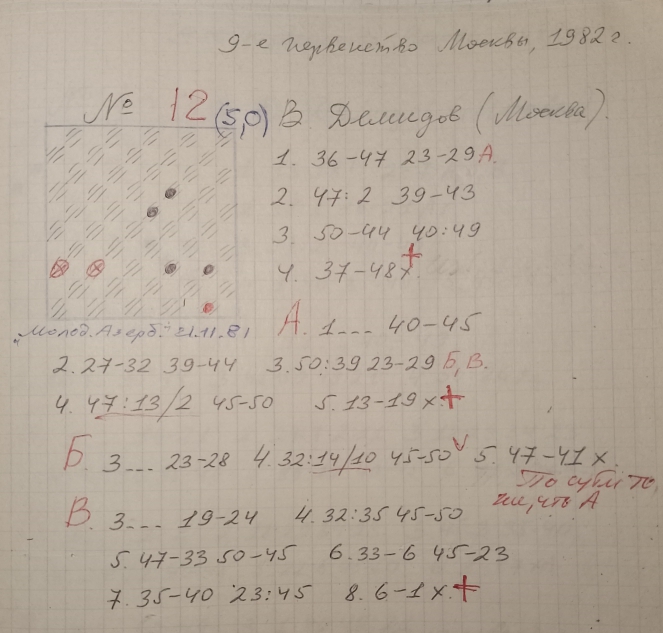 9-е первенство Москвы, 1982 г.
№ 12 (5,0) В. Демидов (Москва).
1. 36-47 23-29 А.
2. 47:2 39-43
3. 50-44 40:49
4. 37-48x+.
"Молод. Азерб." 21.11.81
А. 1... 40-45
2. 27-32 39-44 3. 50:39 23-29 Б, В.
4. 47:13/2 45-50 5. 13-19x.+
Б. 3... 23-28 4. 32:14/10 45-50 V 5. 47-41x.
По сути то
же, что А
В. 3... 19-24 4. 32:35 45-50
5. 47-33 50-45 6. 33-6 45-23
7. 35-40 23:45 8. 6-1x.+